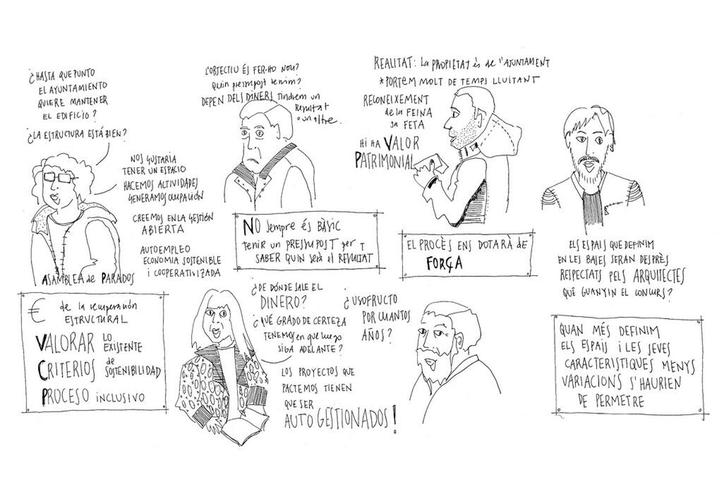 ¿HASTA QUE PUNTO
EL AYUNTAMIENTO
QUIERE MANTENER
EL EDIFICIO?
¿LA ESTRUCTURA ESTÁ BIEN?
NOS GUSTARIA
TENER UN ESPACIO
HACEMOS ACTIVIDADES
GENERAMOS OCUPACIÓN
CREEMOS EN LA GESTIÓN
ABIERTA
AUTOEMPLEO
ECONOMIA SOSTENIBLE
i COOPERATIVIZADA
ASAMBLEA de PARADOS
€ de la recuperación
ESTRUCTURAL
VALORAR LO EXISTENTE
CRITERIOS de SOSTENIBILIDAD
PROCESO INCLUSIVO
L'OBJECTIU ÉS FER-HO NOU?
Quin pressupost tenim?
DEPEN DELS DINERS tindrem un
Resultat
o un altre.
NO sempre és BÀSIC
tenir un PRESSUPOST per
SABER QUIN serà el RESULTAT
¿DE DÓNDE SALE EL
DINERO?
¿QUÉ GRADO DE CERTEZA
TENEMOS en que luego
siga ADELANTE?
LOS PROYECTOS QUE
PACTEMOS TIENEN
QUE SER
AUTOGESTIONADOS!
REALITAT: La PROPIETAT és de l'AJUNTAMENT
*PORTEM MOLT DE TEMPS LLUITANT
RECONEIXEMENT
de la FEINA
ja FETA
HI HA VALOR
PATRIMONIAL
EL PROCÈS ENS DOTARÀ DE
FORÇA
¿USOFRUCTO
POR CUANTOS
AÑOS?
ELS ESPAIS QUE DEFINIM
EN LES BASES SERAN DESPRÈS
RESPECTATS PELS ARQUITECTES
QUE GUANYIN EL CONCURS?
QUAN MÉS DEFINIM
ELS ESPAIS i LES SEVES
CARACTERISTIQUES MENYS
VARIACIONS S'HAURIEN
DE PERMETRE